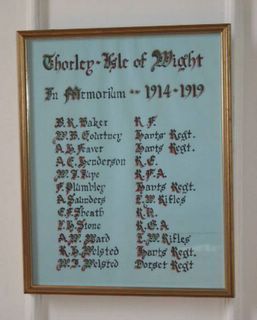 Thorley - Isle of Wight
In Memorium - 1914-1919
B.R. Baker R.F.
W.B. Courtney Hants Regt.
A.H. Hants Regt.
A.E. Henderson R.E.
W.J. R.F.A.
F. Plumbley Hants Regt.
A. Saunders I.W. Rifles
E.F. Sheath R.N.
Stone R.G.A.
A.W. Ward I.W. Rifles
R.H. Welsted Hants Regt.
W.J. Welsted Dorset Regt